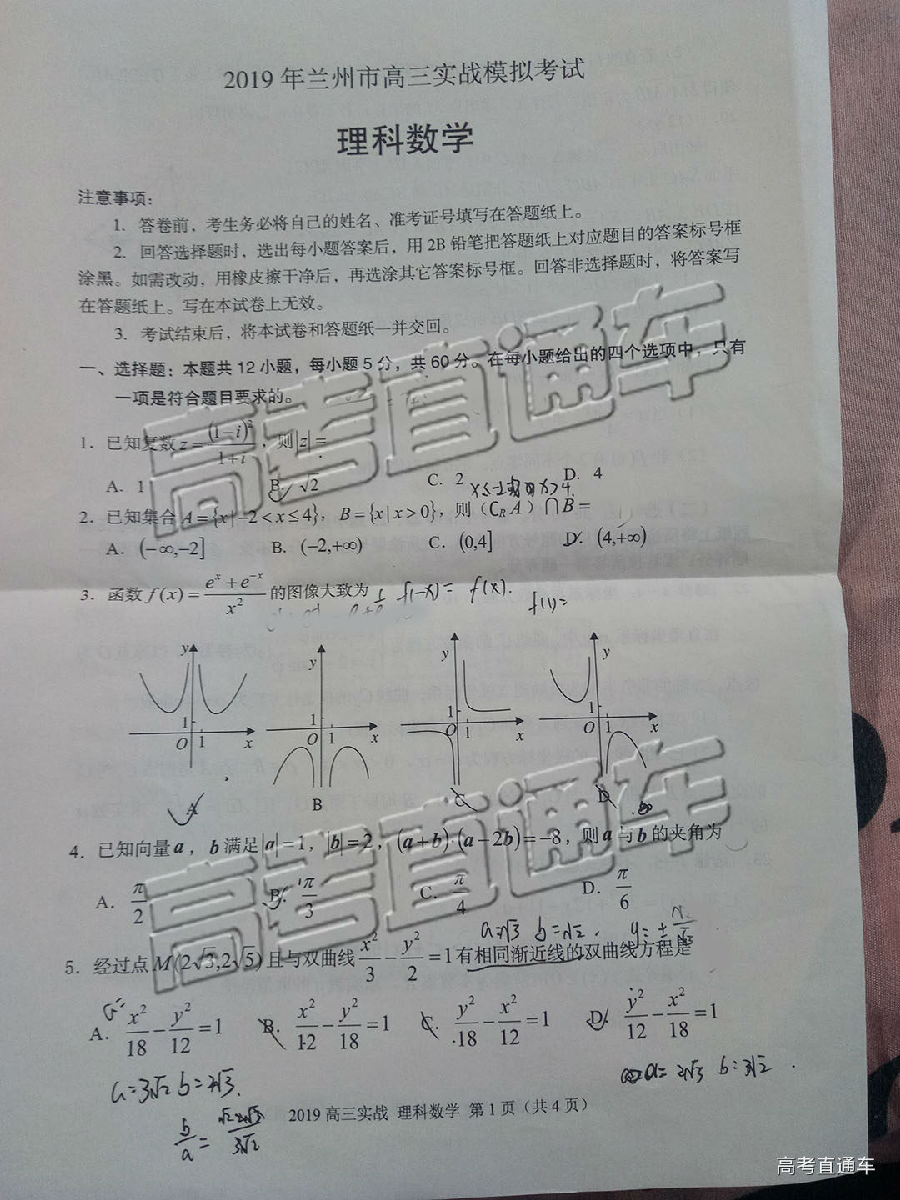 2019 年兰州市高三实战模拟考试
理科数学
注意事项：
1. 答卷前，考生务必将自己的姓名、准考证号填写在答题纸上。
2. 回答选择题时，选出每小题答案后，用 2B 铅笔把答题纸上对应题目的答案标号框
涂黑。如需改动，用橡皮擦干净后，再选涂其它答案标号框。回答非选择题时，将答案写
在答题纸上。写在本试卷上无效。
3. 考试结束后，将本试卷和答题纸一并交回。
一、选择题：本题共 12 小题，每小题 5 分，共 60 分。在每小题给出的四个选项中，只有
一项是符合题目要求的。
1. 已知复数 z = (1-i)²/(1+i)，则|z| =
A. 1 B. √2 C. 2 D. 4
x≤-2或x>4
2. 已知集合 A={x|-2<x≤4}，B={x|x>0}，则（∁R A）∩B =
A. (-∞,-2] B. (-2,+∞) C. (0,4] D. (4,+∞)
3. 函数 f(x) = (eˣ+e⁻ˣ)/x² 的图像大致为 f(-x)= f(x). f(1)=
y 1 O 1 x y 1 O 1 x y 1 O 1 x y 1 O 1 x
A B C D
4. 已知向量 a，b 满足|a|=1，|b|=2，(a+b)·(a-2b)=-8，则 a 与 b 的夹角为
A. π/2 B. π/3 C. π/4 D. π/6
a=√3 b=√2.
5. 经过点 M(2√3,2√5) 且与双曲线 x²/3 - y²/2 = 1 有相同渐近线的双曲线方程是
A. x²/18 - y²/12 = 1 B. x²/12 - y²/18 = 1 C. y²/18 - x²/12 = 1 D. y²/12 - x²/18 = 1
a=3√2 b=2√3.
a=2√3 b=3√2.
b/a =
2019 高三实战 理科数学 第 1 页（共 4 页）
高考直通车
高考直通车
高考直通车